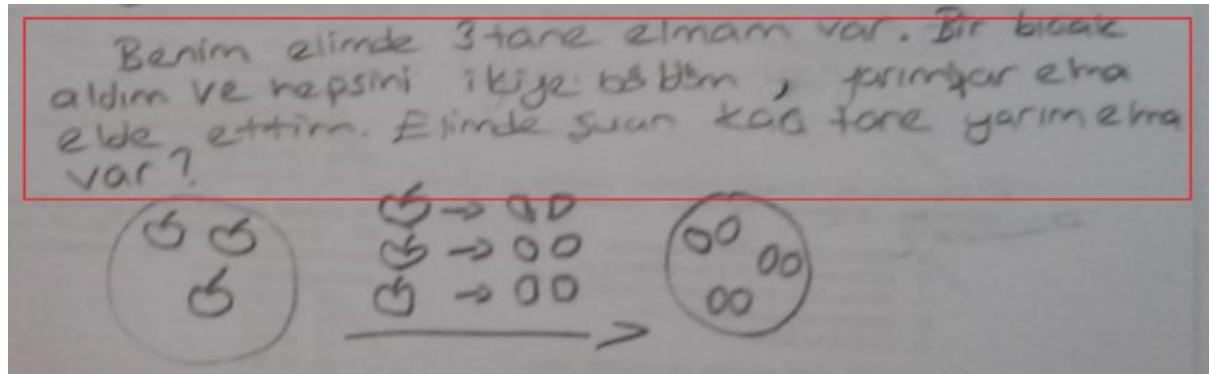 Benim elimde 3 tane elmam var. Bir bıcak
aldım ve hepsini ikiye böldüm, yarımşar elma
elde ettim. Elimde şuan kaç tane yarım elma
var?